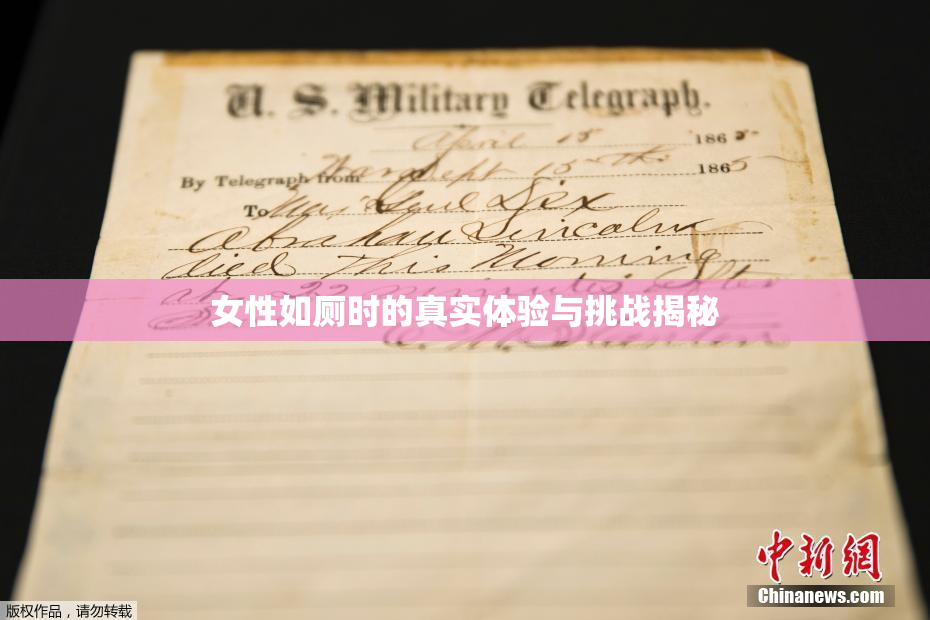 U. S. Military Telegraph.
April 15 1865
By Telegraph from War Dept 15th 1865
To Maj Genl Dix
Abraham Lincoln
died This Morning
at 22 minutes after
女性如厕时的真实体验与挑战揭秘
中新网
Chinanews.com
版权作品,请勿转载